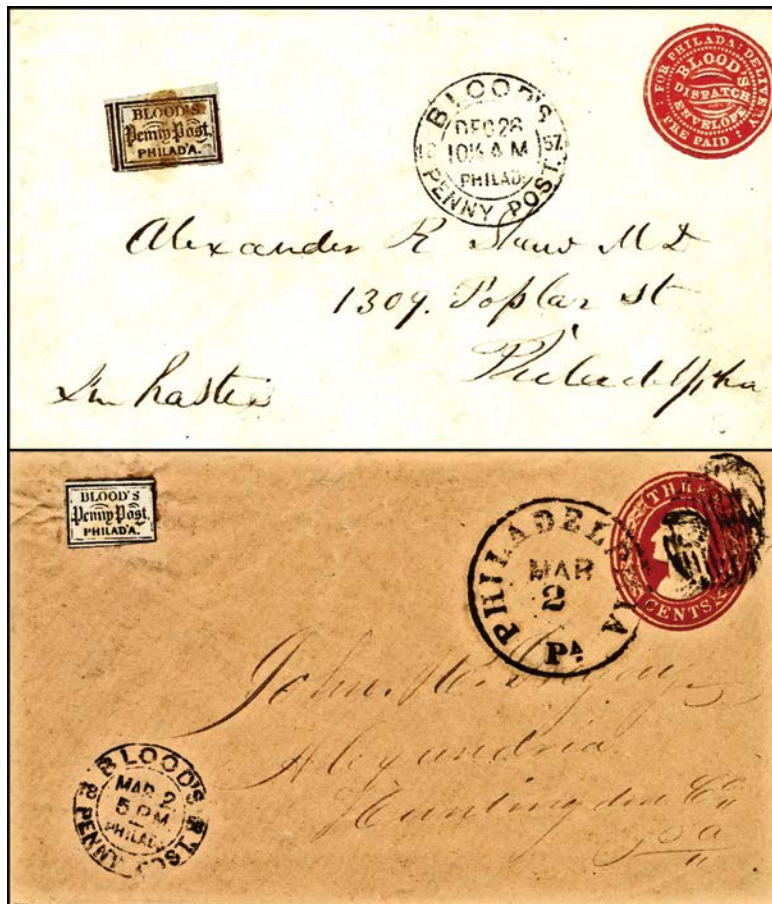 BLOOD'S
Penny Post,
PHILAD'A.
BLOOD'S
DEC 26
10½ A M
PHILAD.
57.
PENNY POST.
FOR PHILADA: DELIVERY
BLOOD'S
DISPATCH
ENVELOPE
PRE PAID
Alexander R M D
1309. Poplar St
Philadelphia
In haste
BLOOD'S
Penny Post,
PHILAD'A.
PHILADELPHIA
MAR
2
PA
THREE
CENTS
John.
Alexandria
Huntingdon Co
Pa
BLOOD'S
MAR 2
5 PM
PHILADA
PENNY POST